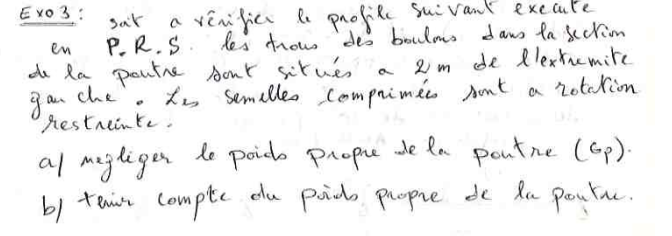 Exo 3 : soit a vérifier le profile suivant execute
en P.R.S. les trous des boulons dans la section
de la poutre sont situés a 2 m de l'extremite
gauche. Les semelles comprimées sont a rotation
restreinte.
a/ negliger le poids propre de la poutre (Gp).
b/ tenir compte du poids propre de la poutre.